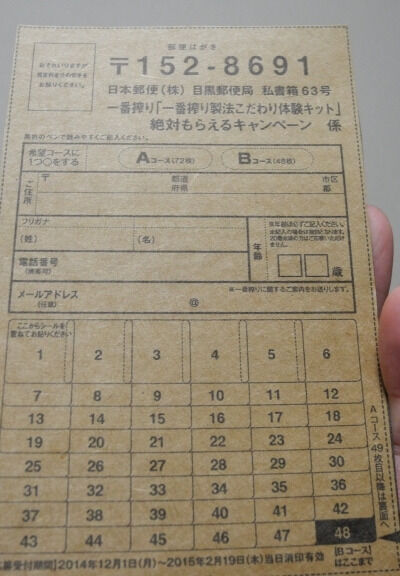 郵便はがき
おそれいりますが
規定料金分の切手を
お貼りください。
〒152-8691
日本郵便(株) 目黒郵便局 私書箱63号
一番搾り「一番搾り製法こだわり体験キット」
絶対もらえるキャンペーン 係
黒色のペンで読みやすくご記入ください。
希望コースに
1つ○をする
Aコース(72枚)
Bコース(48枚)
ご住所
〒
都道
府県
市区
郡
フリガナ
(姓)
(名)
年齢
※年齢は必ずご記入ください。
未記入の場合は無効となります。
20歳未満の方はご応募いただけ
ません。
歳
電話番号
(携帯可)
メールアドレス
(任意)
@
※一番搾りに関するご案内をお送りします。
ここからシールを
重ねてお貼りください
1 2 3 4 5 6
7 8 9 10 11 12
13 14 15 16 17 18
19 20 21 22 23 24
25 26 27 28 29 30
31 32 33 34 35 36
37 38 39 40 41 42
43 44 45 46 47 48
Aコース49枚目以降は裏面へ
[Bコース]
はここまで
応募受付期間]2014年12月1日(月)~2015年2月19日(木)当日消印有効